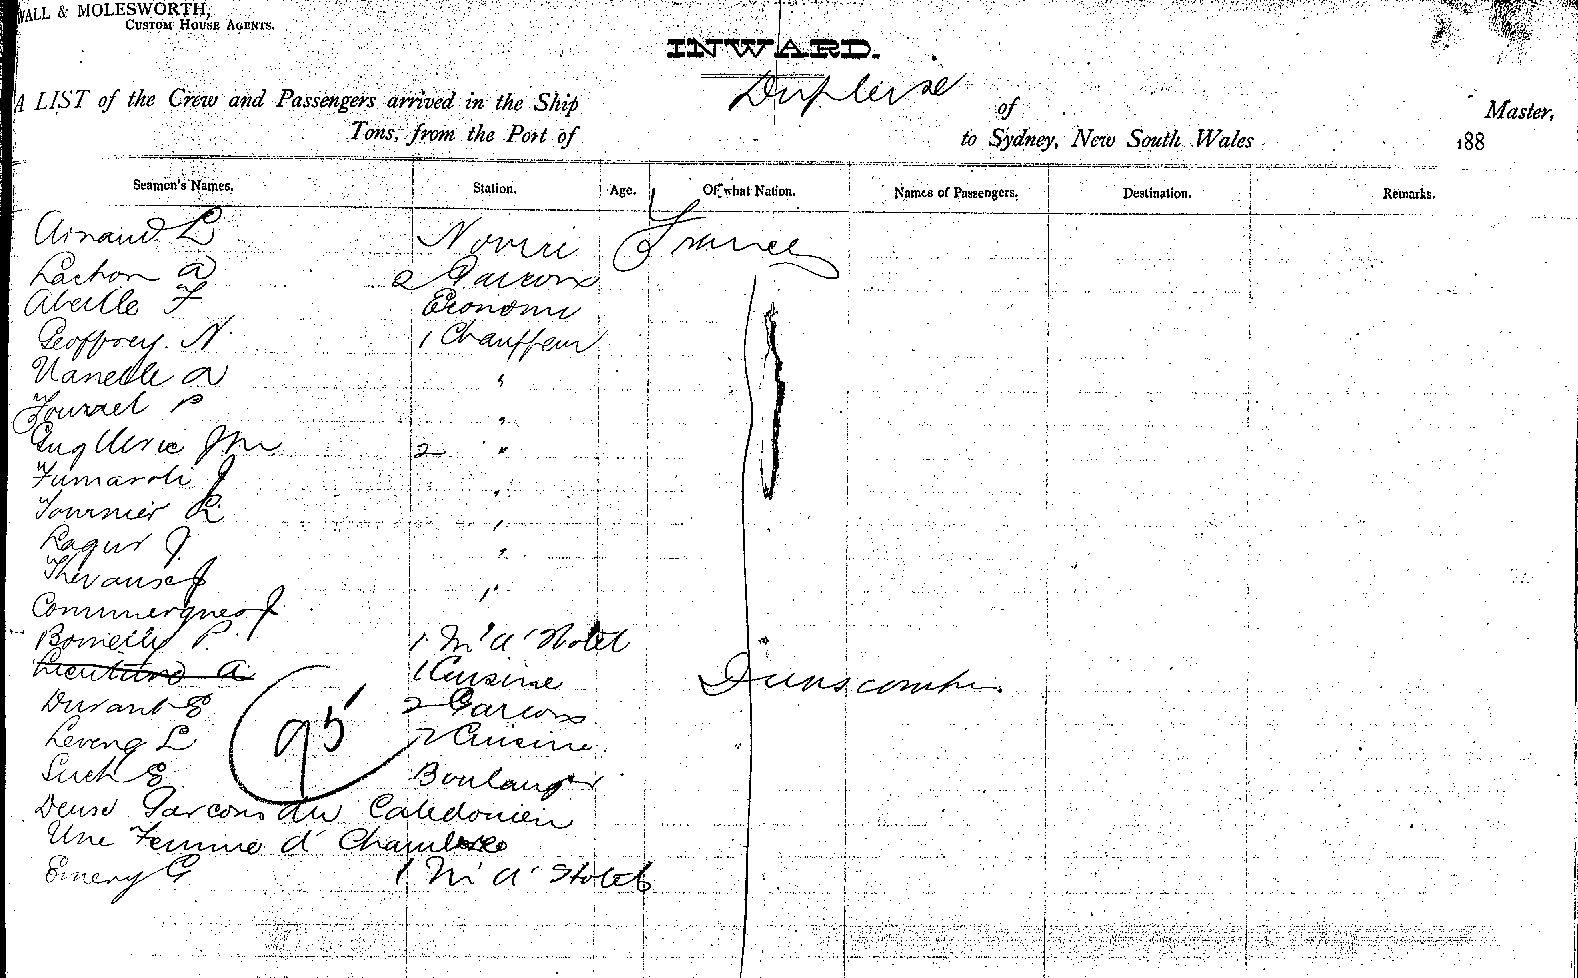 WALL & MOLESWORTH,
CUSTOM HOUSE AGENTS.
INWARD.
A LIST of the Crew and Passengers arrived in the Ship Dupleise of Master,
Tons, from the Port of to Sydney, New South Wales 188
Seamen's Names. Station. Age. Of what Nation. Names of Passengers. Destination. Remarks.
Arnaud L Novice France
Lachon A 2 Garcons
Abeille F Econome
Geoffroy. N. 1 Chauffeur
A "
Fourrel P "
J M 2 "
Fumaroli J "
Fournier L "
Lagur J. "
J "
J "
P. 1 M' d' Hotel
A 1 Cuisine Dunscombe
Durant E 2 Garcons
Leveng L 2 Cuisine
95
Such E Boulanger
Deux Garcons du Caledonien
Une Femme d' Chambre
Emery G 1 M' d' Hotel